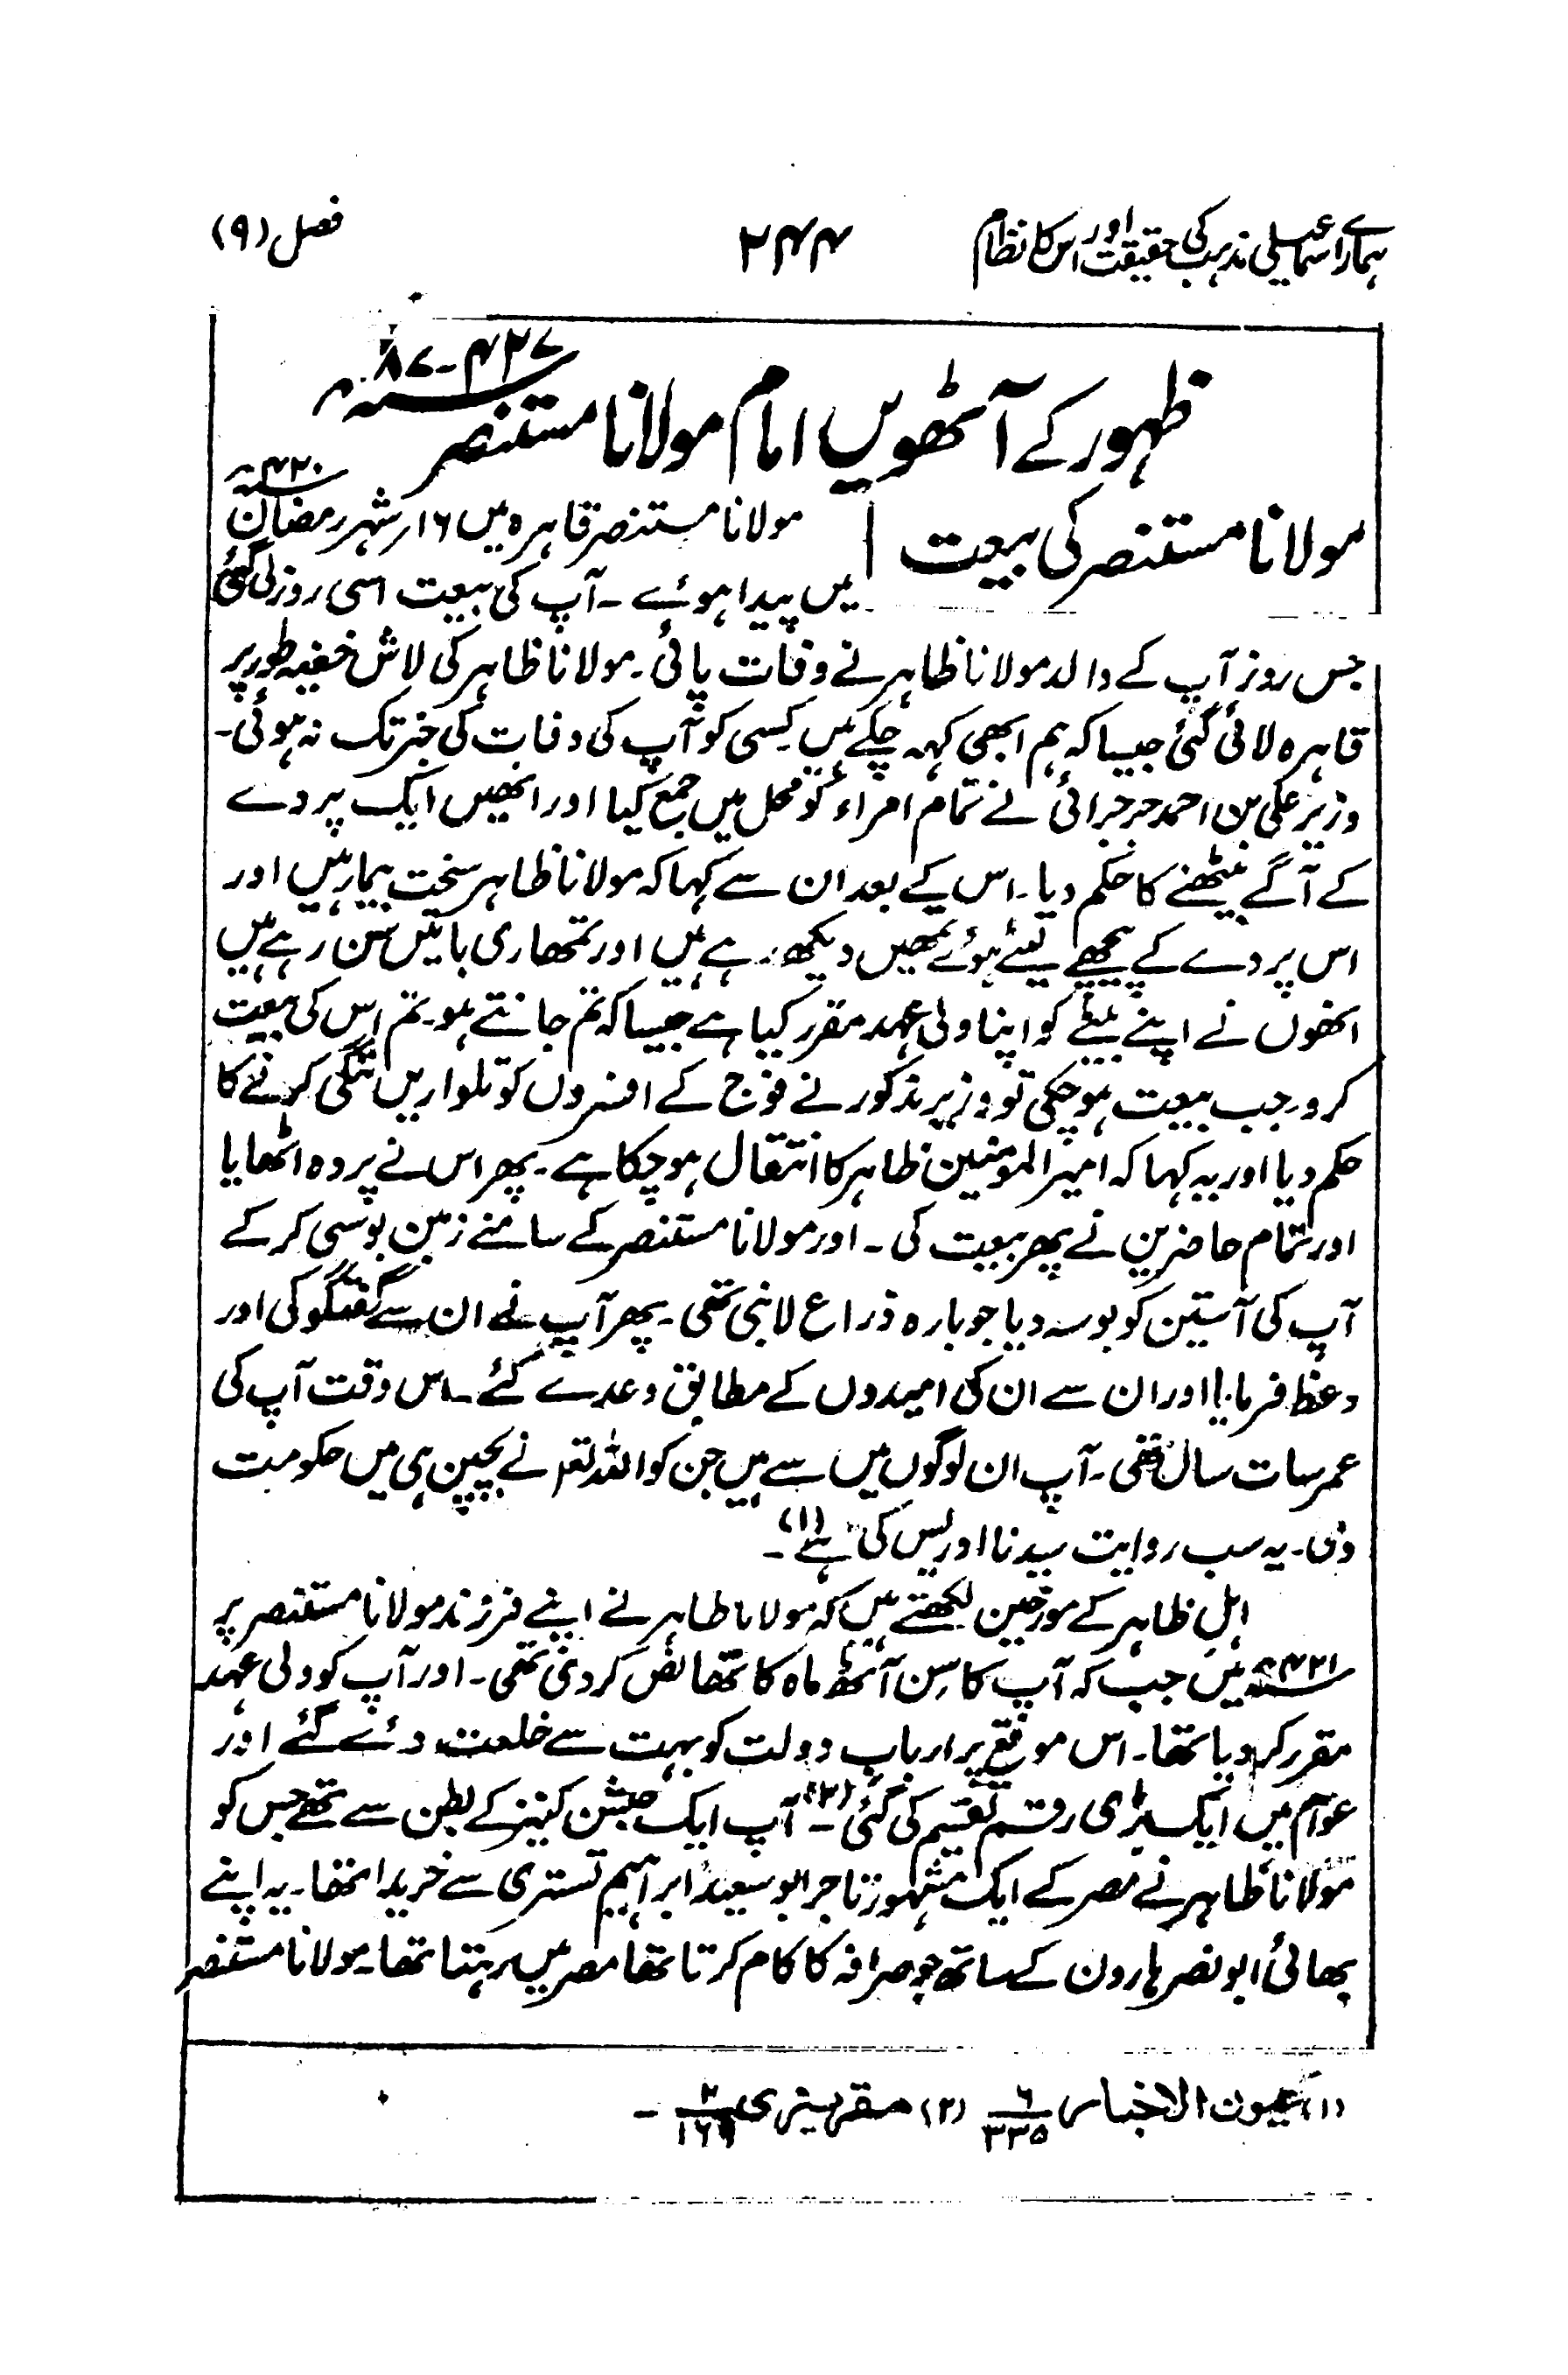 ہمارے اسماعیلی مذہب کی حقیقت اور اس کا نظام ۲۴۴ فصل (۹)
ظہور کے آٹھویں امام مولانا مستنصر ۴۲۷-۸۷ سنہ
مولانا مستنصر کی بیعت مولانا مستنصر قاہرہ میں ۱۶ر شہر رمضان سنہ ۴۲۰
میں پیدا ہوئے۔ آپ کی بیعت اسی روز لی گئی
جس روز آپ کے والد مولانا ظاہر نے وفات پائی۔ مولانا ظاہر کی لاش خفیہ طور پر
قاہرہ لائی گئی جیسا کہ ہم ابھی کہہ چکے ہیں کسی کو آپ کی وفات کی خبر تک نہ ہوئی۔
وزیر علی بن احمد جرجرائی نے تمام امراء کو محل میں جمع کیا اور انھیں ایک پردے
کے آگے بیٹھنے کا حکم دیا۔ اس کے بعد ان سے کہا کہ مولانا ظاہر سخت بیمار ہیں اور
اس پردے کے پیچھے لیٹے ہوئے تمھیں دیکھ رہے ہیں اور تمھاری باتیں سن رہے ہیں
انھوں نے اپنے بیٹے کو اپنا ولی عہد مقرر کیا ہے جیسا کہ تم جانتے ہو۔ تم اس کی بیعت
کرو۔ جب بیعت ہو چکی تو وزیر مذکور نے فوج کے افسروں کو تلواریں ننگی کرنے کا
حکم دیا اور یہ کہا کہ امیر المومنین ظاہر کا انتقال ہو چکا ہے۔ پھر اس نے پردہ اٹھایا
اور تمام حاضرین نے پھر بیعت کی۔ اور مولانا مستنصر کے سامنے زمین بوسی کر کے
آپ کی آستین کو بوسہ دیا جو بارہ ذراع لانبی تھی۔ پھر آپ نے ان سے گفتگو کی اور
وعظ فرمایا اور ان سے ان کی امیدوں کے مطابق وعدے کئے۔ اس وقت آپ کی
عمر سات سال تھی۔ آپ ان لوگوں میں سے ہیں جن کو اللہ تعہ نے بچپن ہی میں حکومت
دی۔ یہ سب روایت سیدنا ادریس کی ہے (۱)۔
اہل ظاہر کے مورخین لکھتے ہیں کہ مولانا ظاہر نے اپنے فرزند مولانا مستنصر پر
سنہ ۴۲۱ میں جب کہ آپ کا سِن آٹھ ماہ کا تھا نص کر دی تھی۔ اور آپ کو ولی عہد
مقرر کر دیا تھا۔ اس موقع پر ارباب دولت کو بہت سے خلعت دئے گئے اور
عوام میں ایک بڑی رقم تقسیم کی گئی (۲)۔ آپ ایک حبشن کنیز کے بطن سے تھے جس کو
مولانا ظاہر نے مصر کے ایک مشہور تاجر ابو سعید ابراہیم تستری سے خریدا تھا۔ یہ اپنے
بھائی ابو نصر ہارون کے ساتھ جو صرافہ کا کام کرتا تھا مصر میں رہتا تھا۔ مولانا مستنصر
(۱) عیون الاخبار ۶/۳۳۵ (۲) مقریزی ۲/۱۶۹ ۔